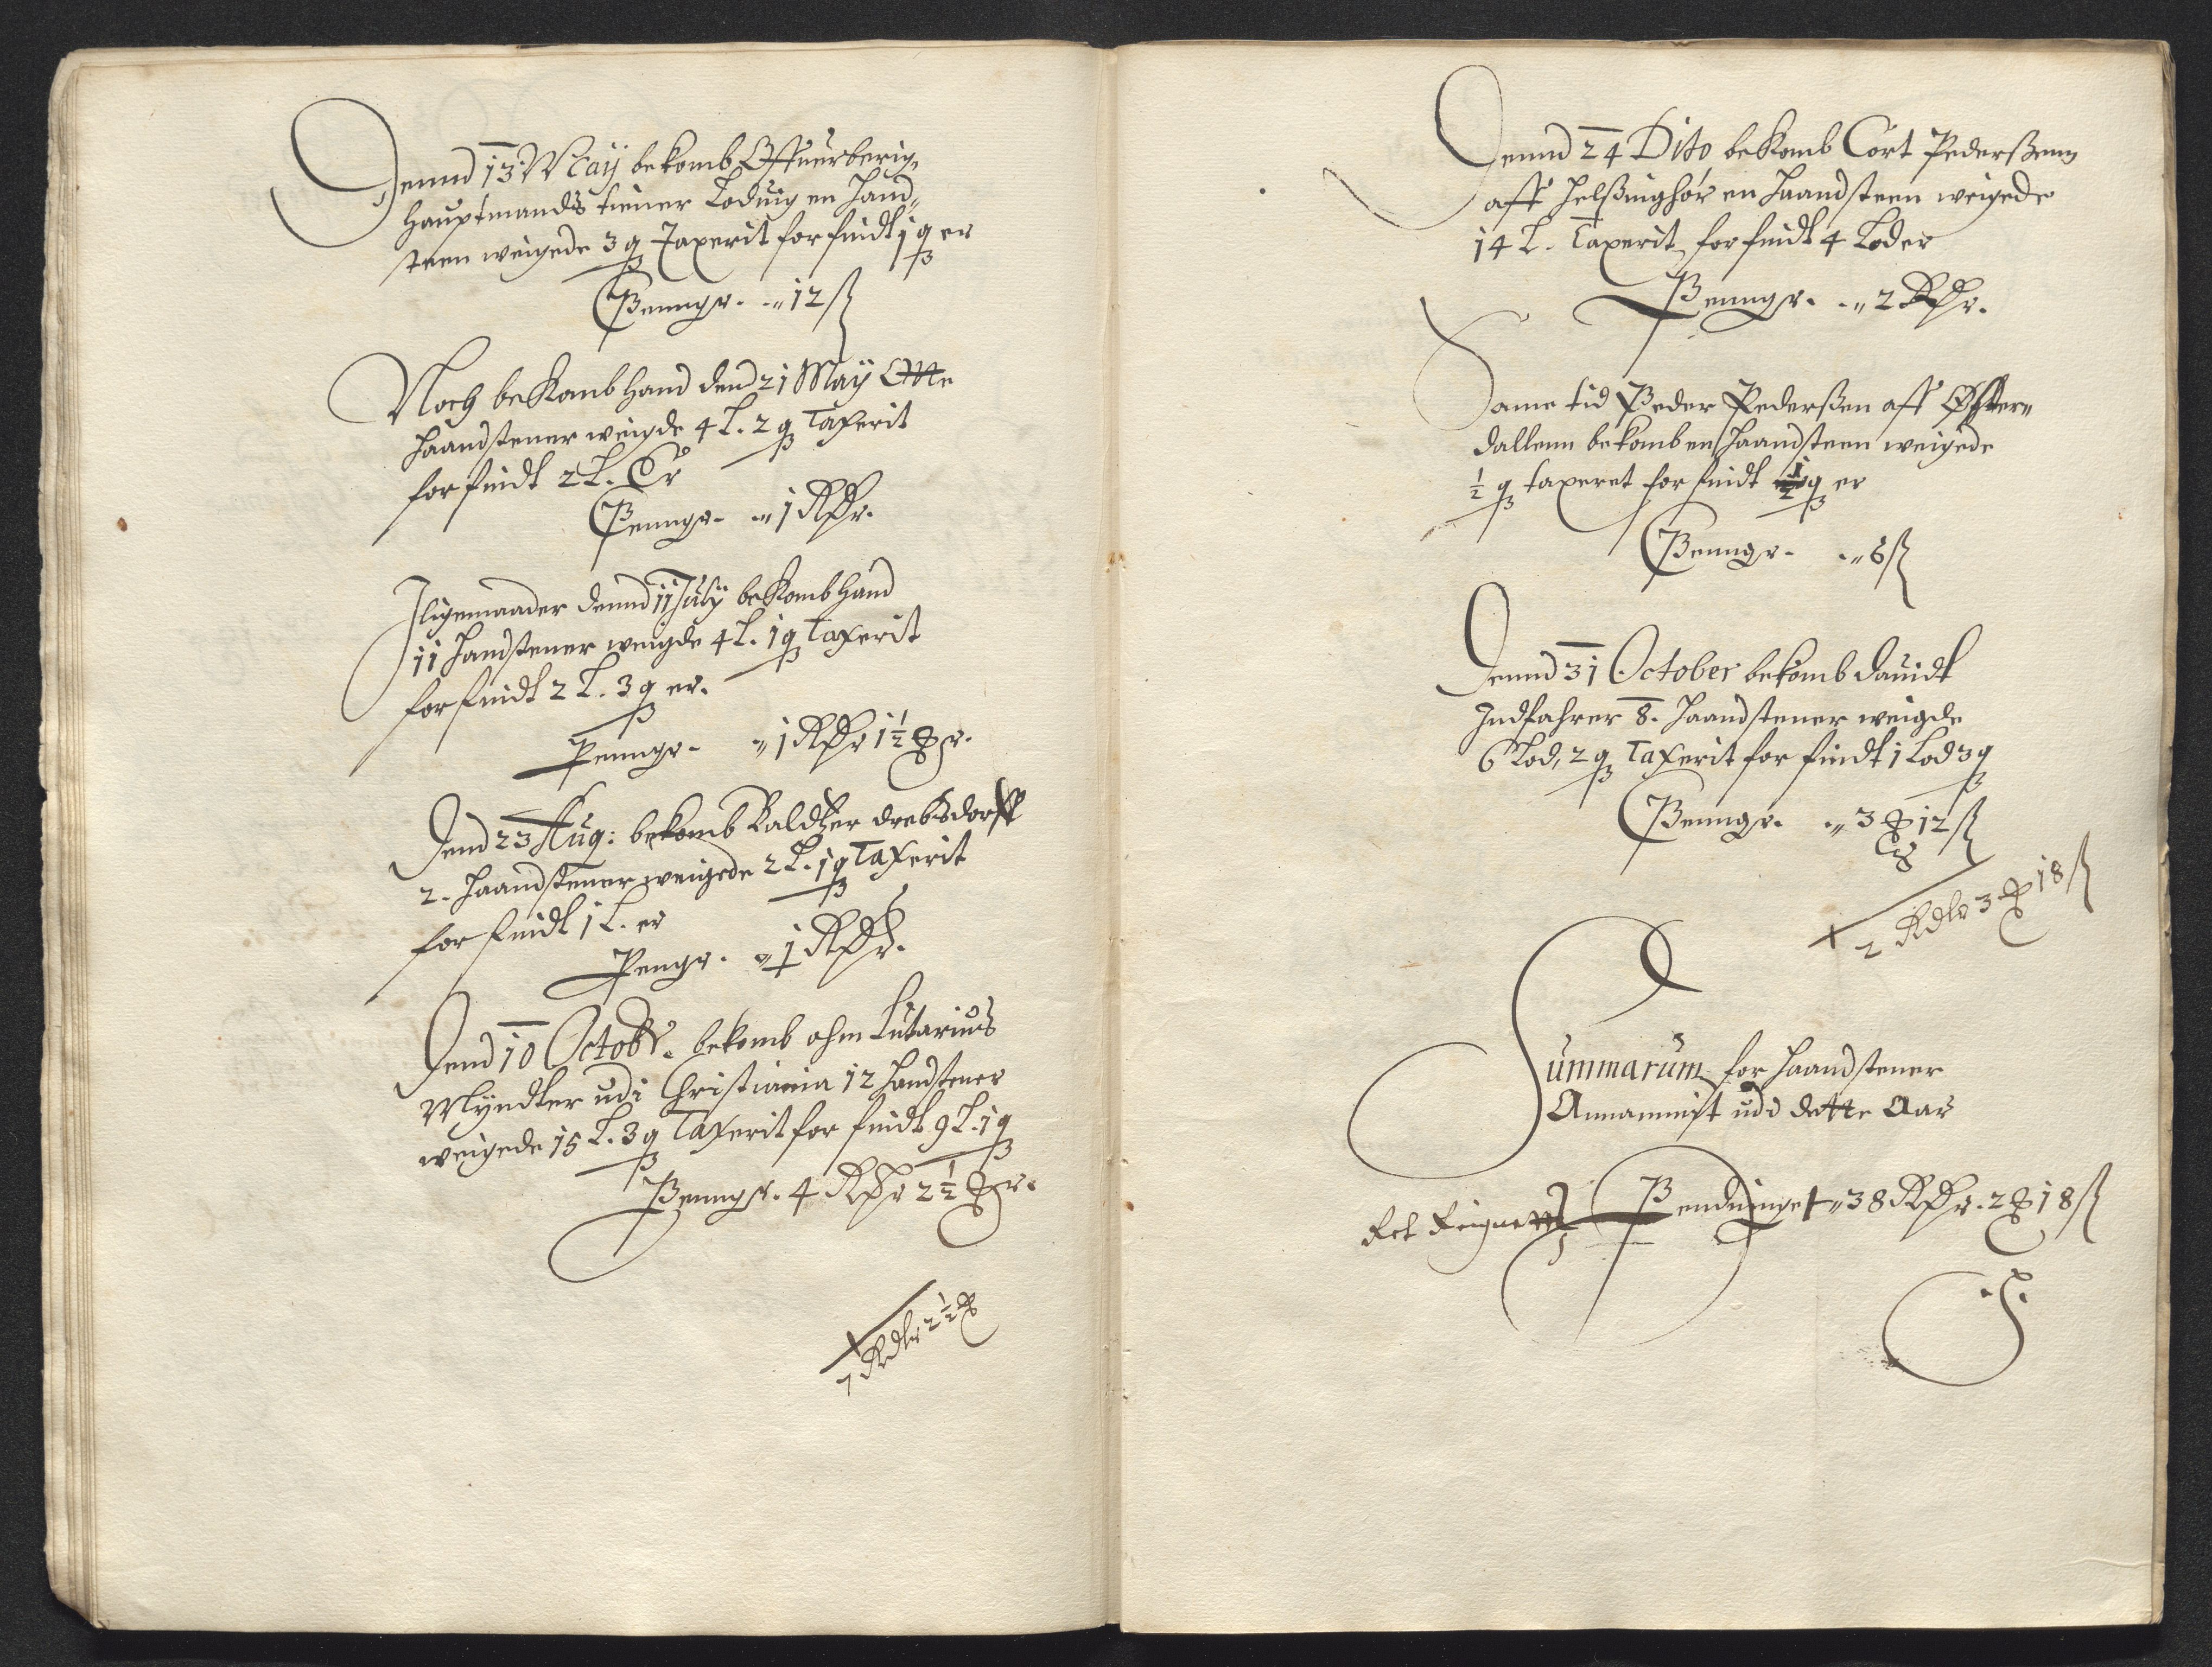 Dennd 13 May bekomb Offuerberig,
hauptmands tiener Loduig en Hand,
steen weigede 3 q Taxerit for findt 1 q er
Penngr. 12 ß
Noch bekomb hand dend 21 May Otte
Haandstener weigde 4 L. 2 q Taxerit
for findt 2 L. Er
Penngr. 1 RDr.
I ligemaader dennd 11 July bekomb hand
11 Handstener weigde 4 L. 1 q Taxerit
for findt 2 L. 3 q er.
Penngr. 1 RDr 1½ ortr.
Dend 23 Aug: bekomb Baldtzer drebsdorff
2. Haandstener weigede 2 L. 1 q Taxerit
for findt 1 L. er
Pengr. 1 RDr.
Dend 10 Octobr. bekomb ohm Lutarius
Myndter udi Christiania 12 Handstener
weigede 15 L. 3 q Taxerit for findt 9 L. 1 q
Penngr. 4 RDr 2½ ortr.
7 Rdlr 2½ ort
Dennd 24 Dito bekomb Cort Pederßenn
aff Helßinghör en Haandsteen weigede
14 L. Taxerit for findt 4 Lod er
Penngr. 2 RDr.
Same tid Peder Pederßen aff Øster,
dallenn bekomb en Haandsteen weigede
½ q taxeret for findt ½ q er
Penngr. 6 ß
Dennd 31 October bekomb Dauidt
Indfahrer 8. Haandstener weigde
6 Lod, 2 q Taxerit for findt 1 Lod 3 q
Penngr. 3 ort 12 ß
2 Rdlr 3 ort 18 ß
Summarum for Haandstener
Annammit udi dette Aar
Penduinge 38 RDr. 2 ort 18 ß